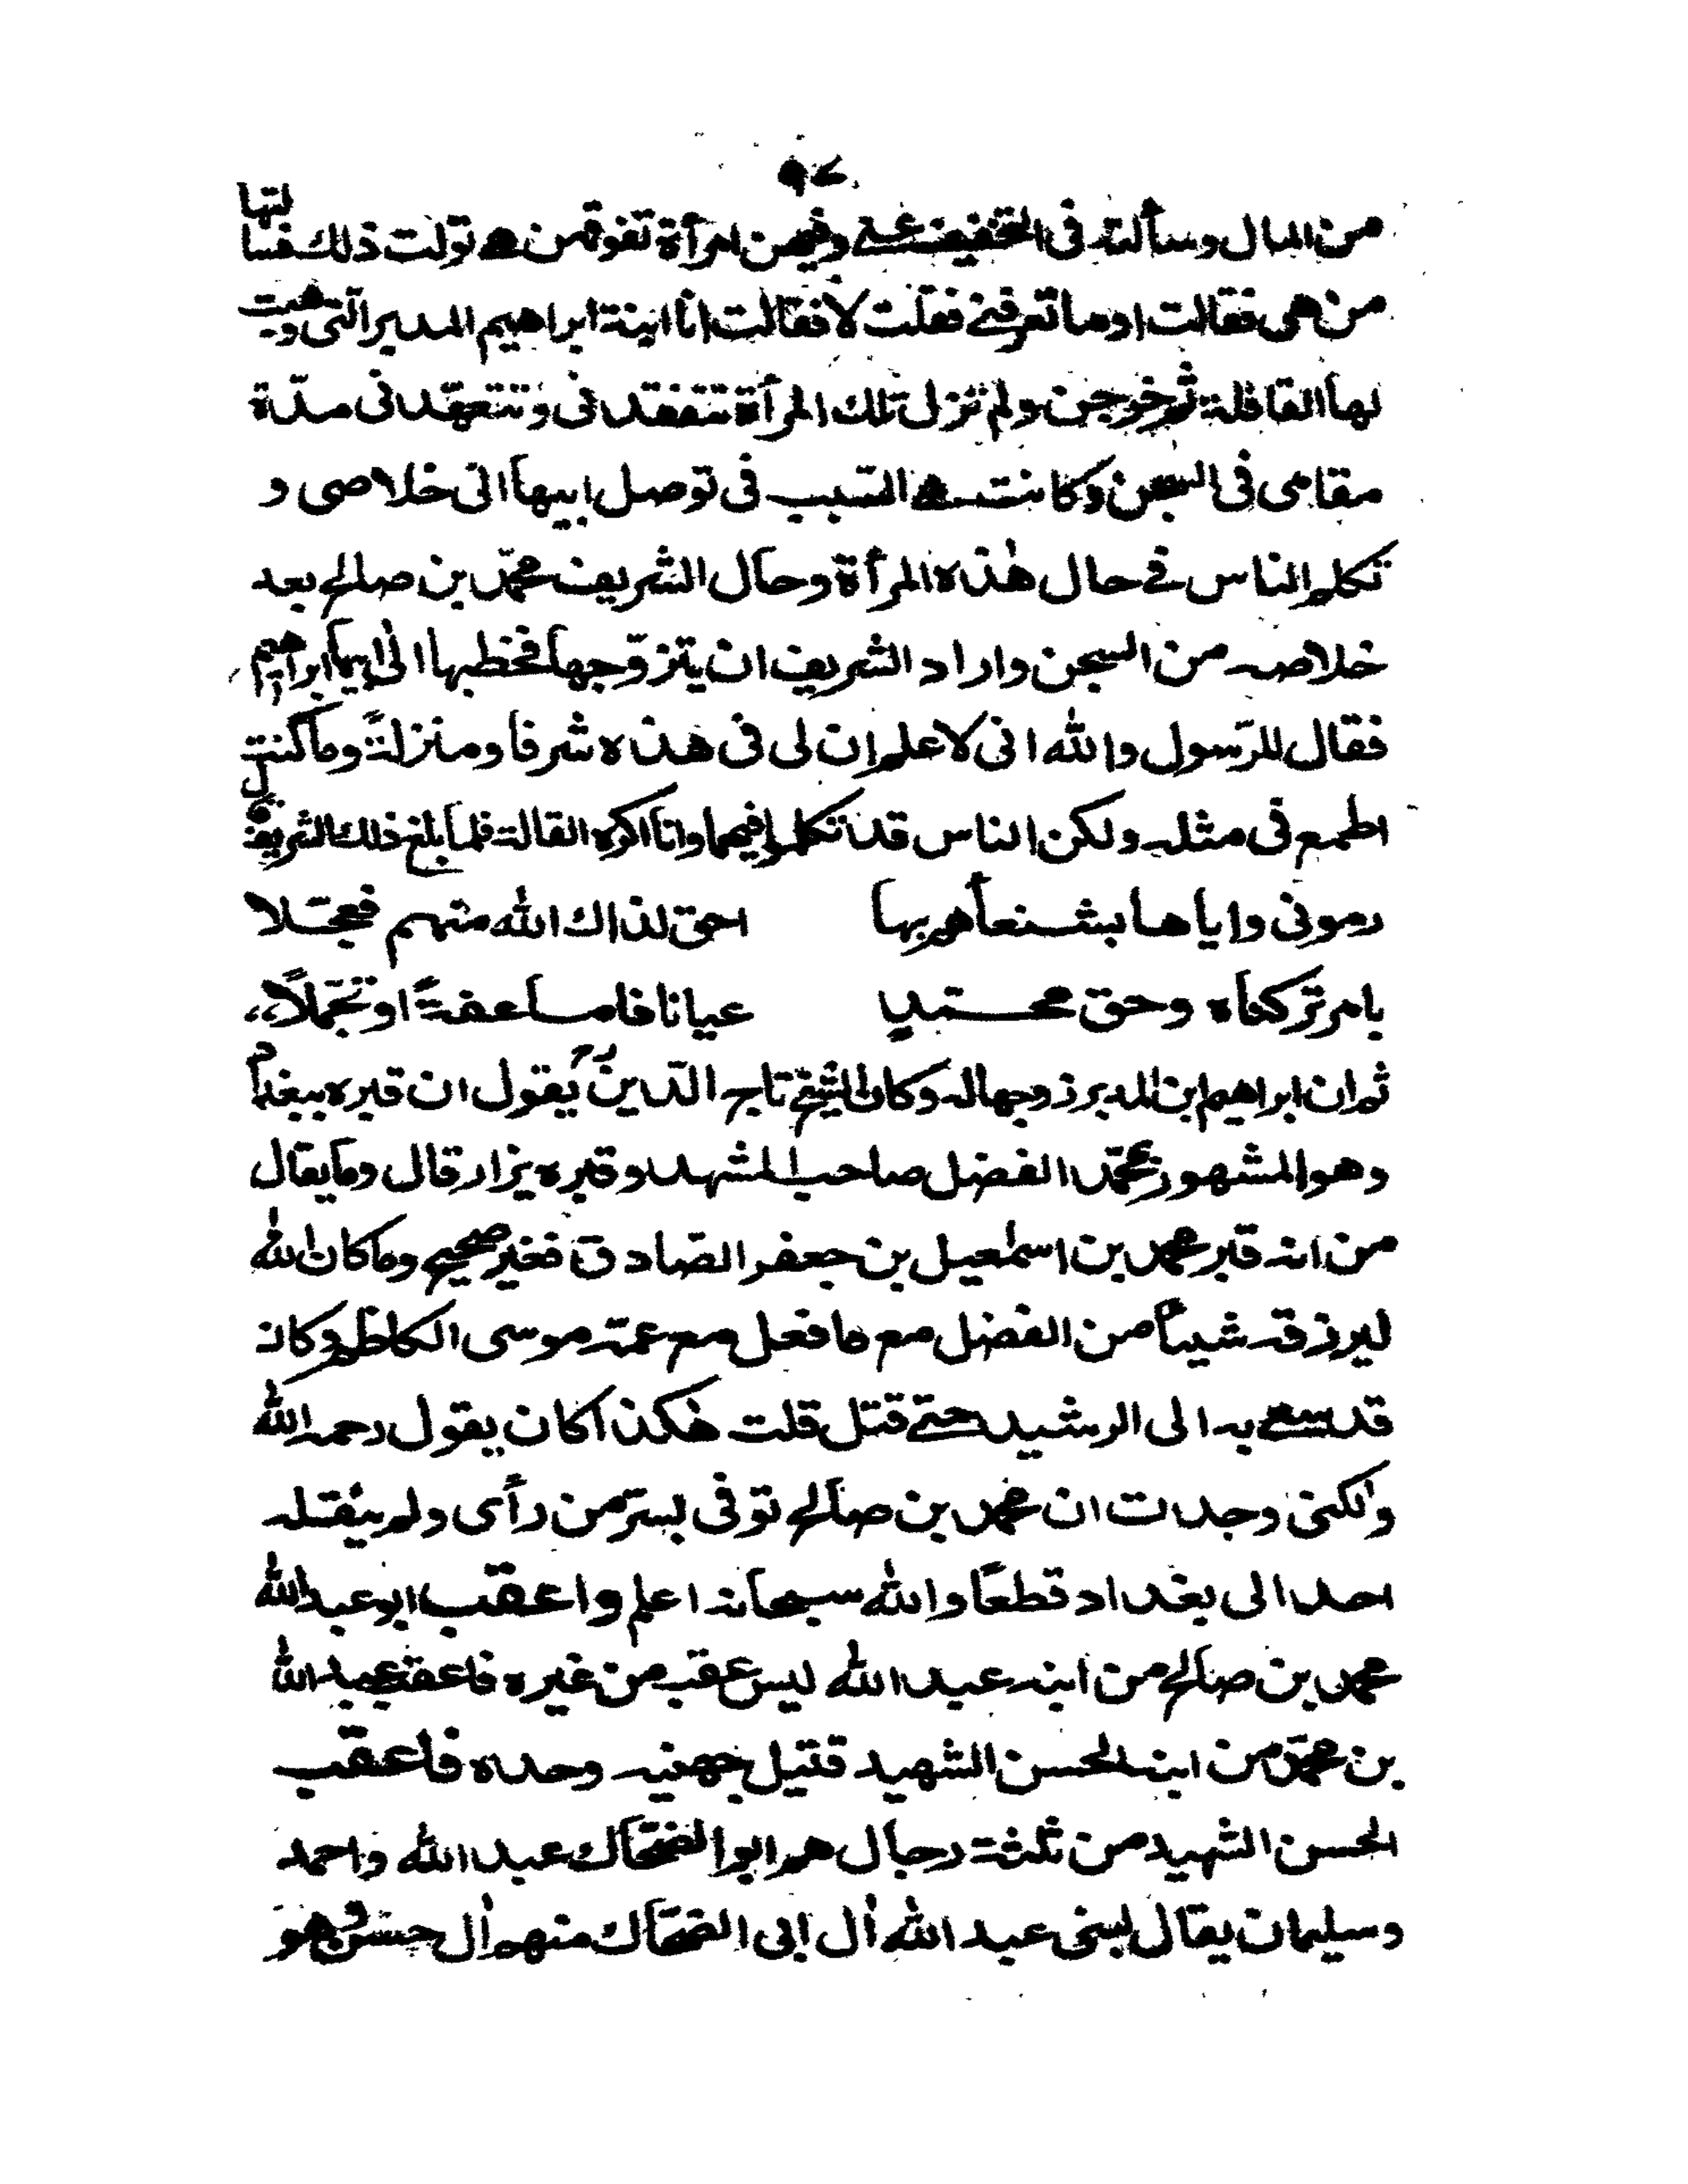 ٩٧
من المال وسألته فى التخفيف عنى وفيهن امرأة تفوقهن هى تولت ذلك فسألتها
من هى فقالت اوما تعرفنى فقلت لا فقالت انا ابنة ابراهيم المدبر التى وهبت
لها القافلة ثم خرجن ولم تزل تلك المرأة تتفقدنى وتتعهّدنى مدّة
مقامى فى السجن وكانت هى السّبب فى توصل ابيها الى خلاصى و
تكلم الناس فى حال هٰذه المرأة وحال الشريف محمّد بن صالح بعد
خلاصه من السجن واراد الشريف ان يتزوّجها فخطبها الىٰ ابيها ابراهيم
فقال للرّسول والله انى لاعلم ان لى فى هذه شرفا ومنزلةً وما كنت
اطمع فى مثله ولكن الناس قد تكلموا فيهما وانا اكره القالة فلما بلغ ذلك الشريف قال
رمونى واياها بشنعأ هم بها احق لذاك الله منهم فعجّلا
بامر تركناه وحق محمّد عيانا فاما عفةً او تجمّلاً،،
ثم ان ابراهيم ابن المدبر زوجها له وكان الشيخ تاج الدّين رح يقول ان قبره ببغداد
وهو المشهور بمحمّد الفضل صاحب المشهد وقبره يزار قال وما يقال
من انه قبر محمد بن اسمٰعيل بن جعفر الصّادق فغير صحيح وما كان الله
ليرزقه شيئاً من الفضل مع ما فعل مع عمّه موسى الكاظم وكان
قد سعى به الى الرشيد حتى قتل قلت هٰكذا كان يقول رحمه الله
ولكنى وجدت ان محمد بن صالح توفى بسرّ من رأى ولم ينقله
احد الى بغداد قطعًا والله سبحانه اعلم واعقب ابو عبدالله
محمد بن صالح من ابنه عبدالله ليس عقب من غيره فاعقب عبدالله
بن محمّد من ابنه الحسن الشهيد قتيل جهنيه وحده فاعقب
الحسن الشهيد من ثلثة رجال هم ابو الضحّاك عبدالله واحمد
وسليمان يقال لبنى عبدالله اٰل ابى الضحّاك منهم اٰل حسن وهو